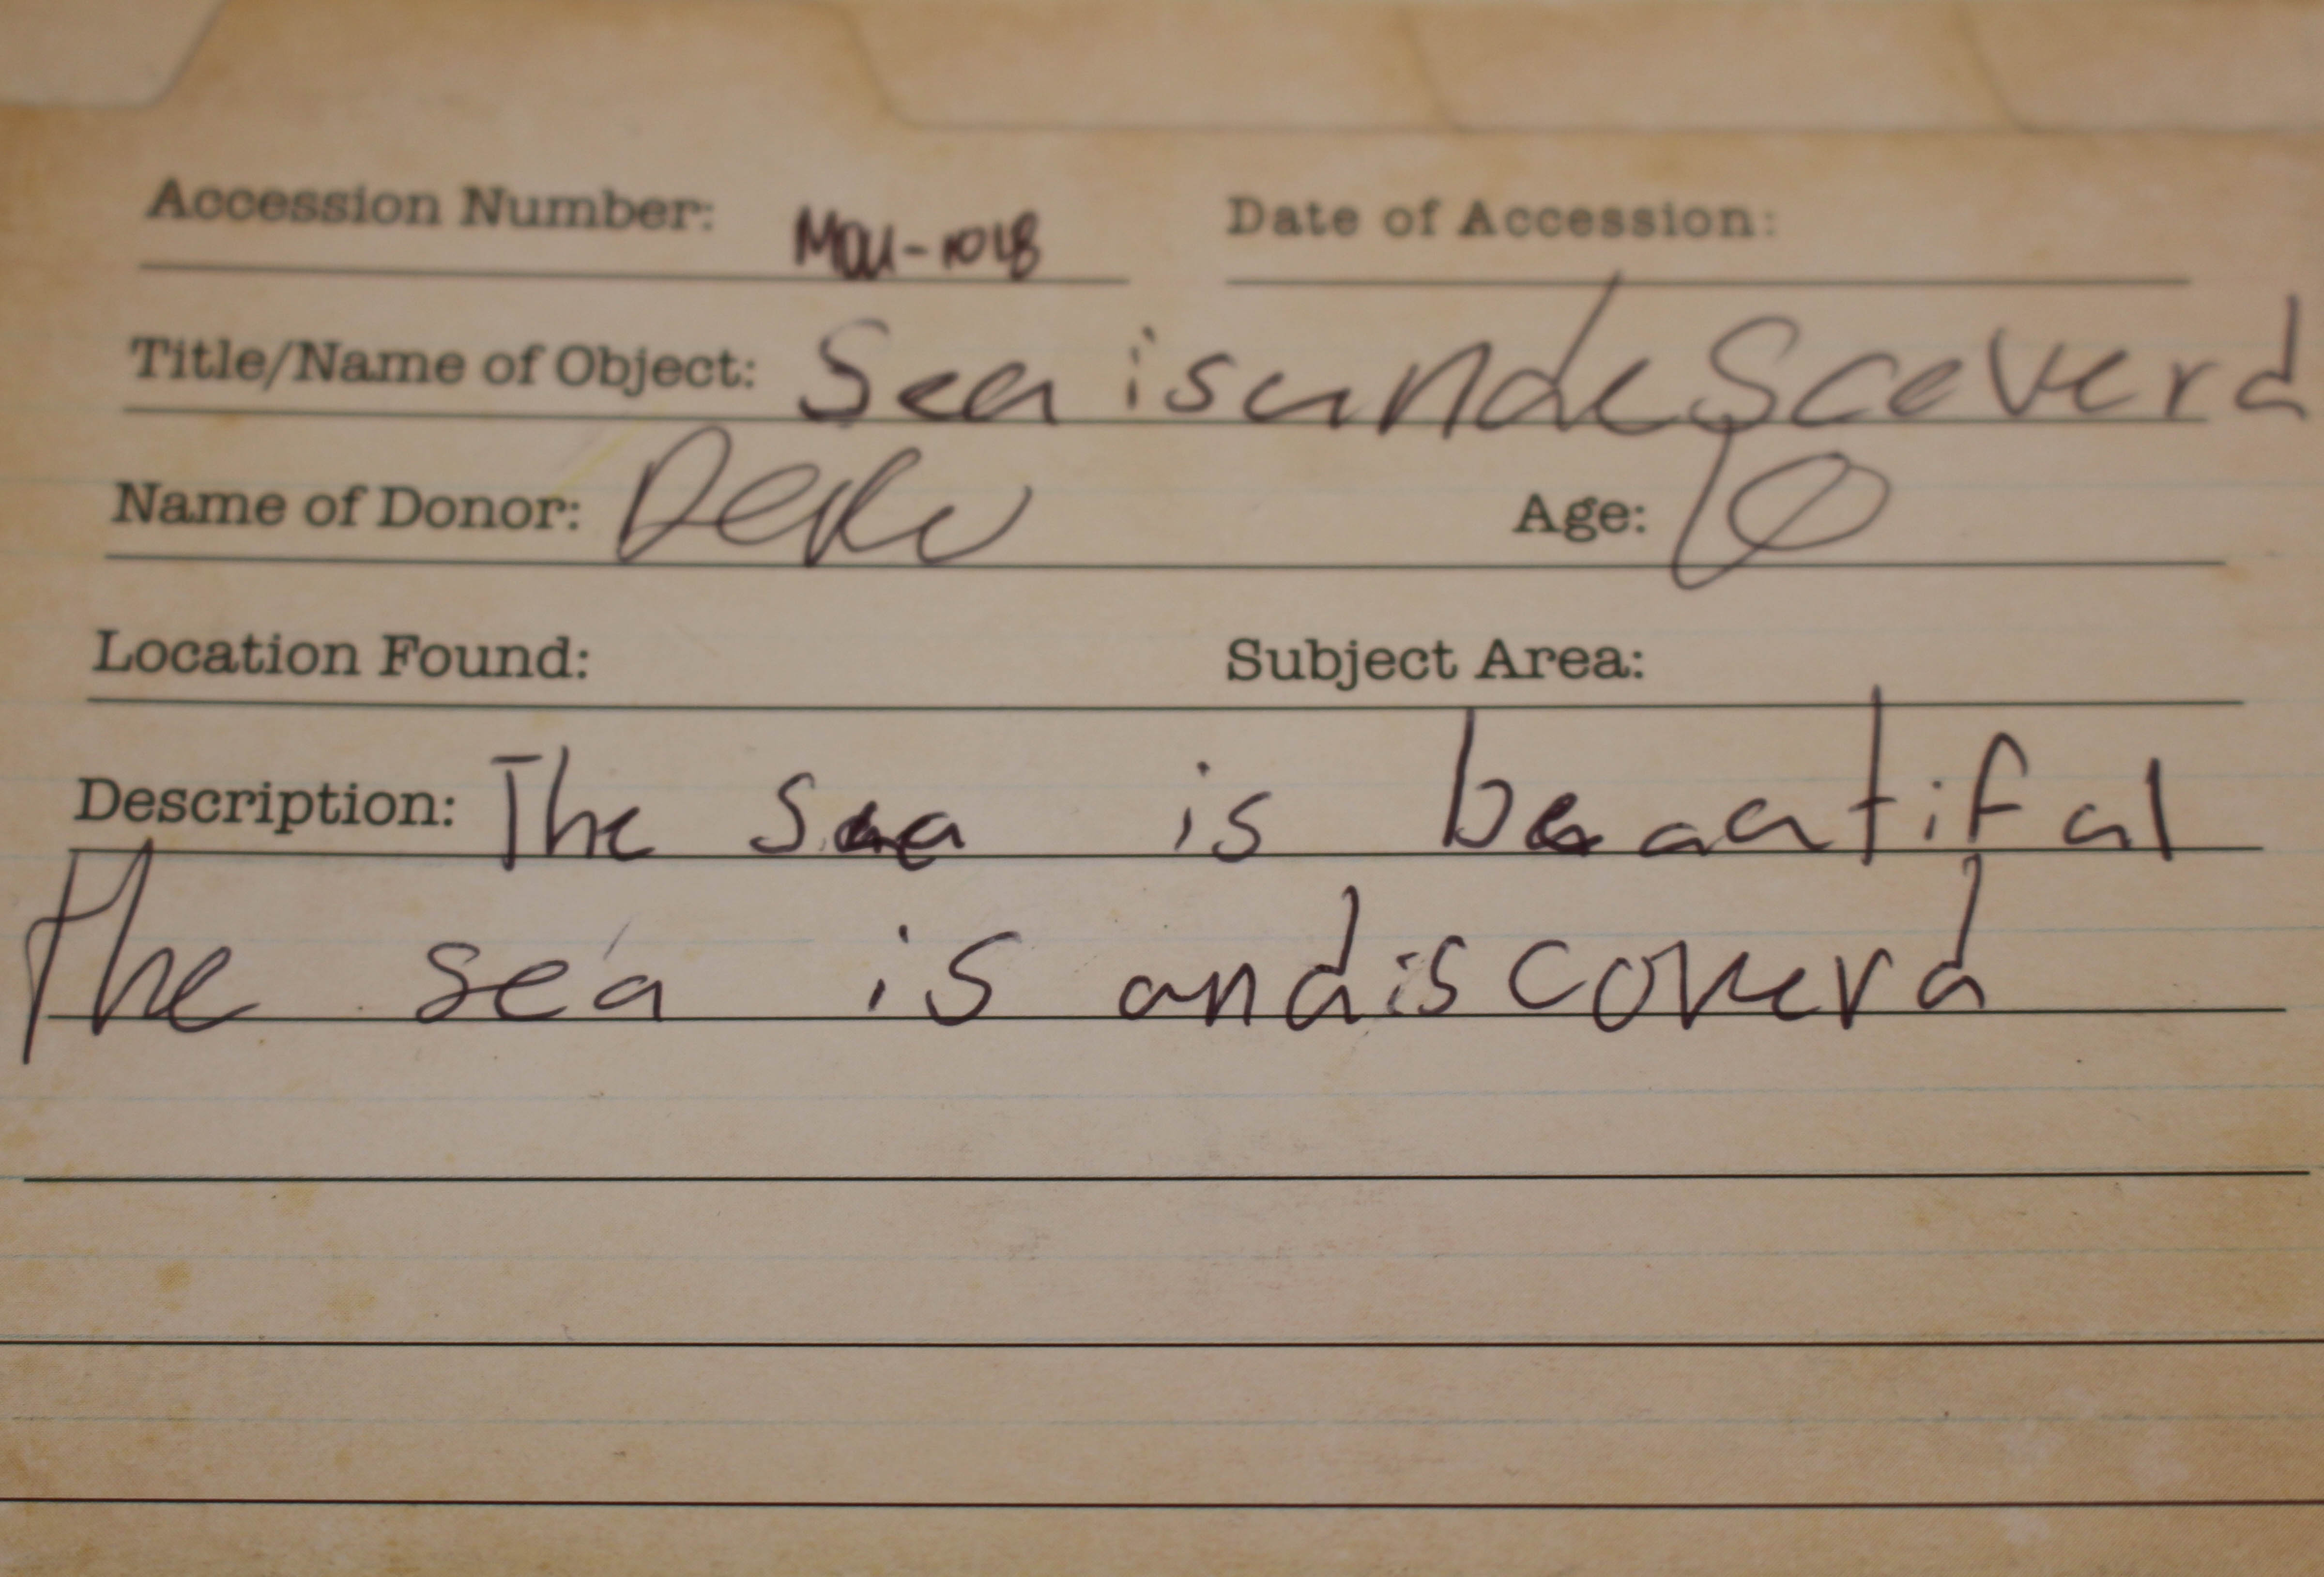 Accession Number: MOU-1018 Date of Accession:
Title/Name of Object: Sea is undescoverd
Name of Donor: Deku Age: 10
Location Found: Subject Area:
Description: The sea is beautiful
The sea is undiscoverd